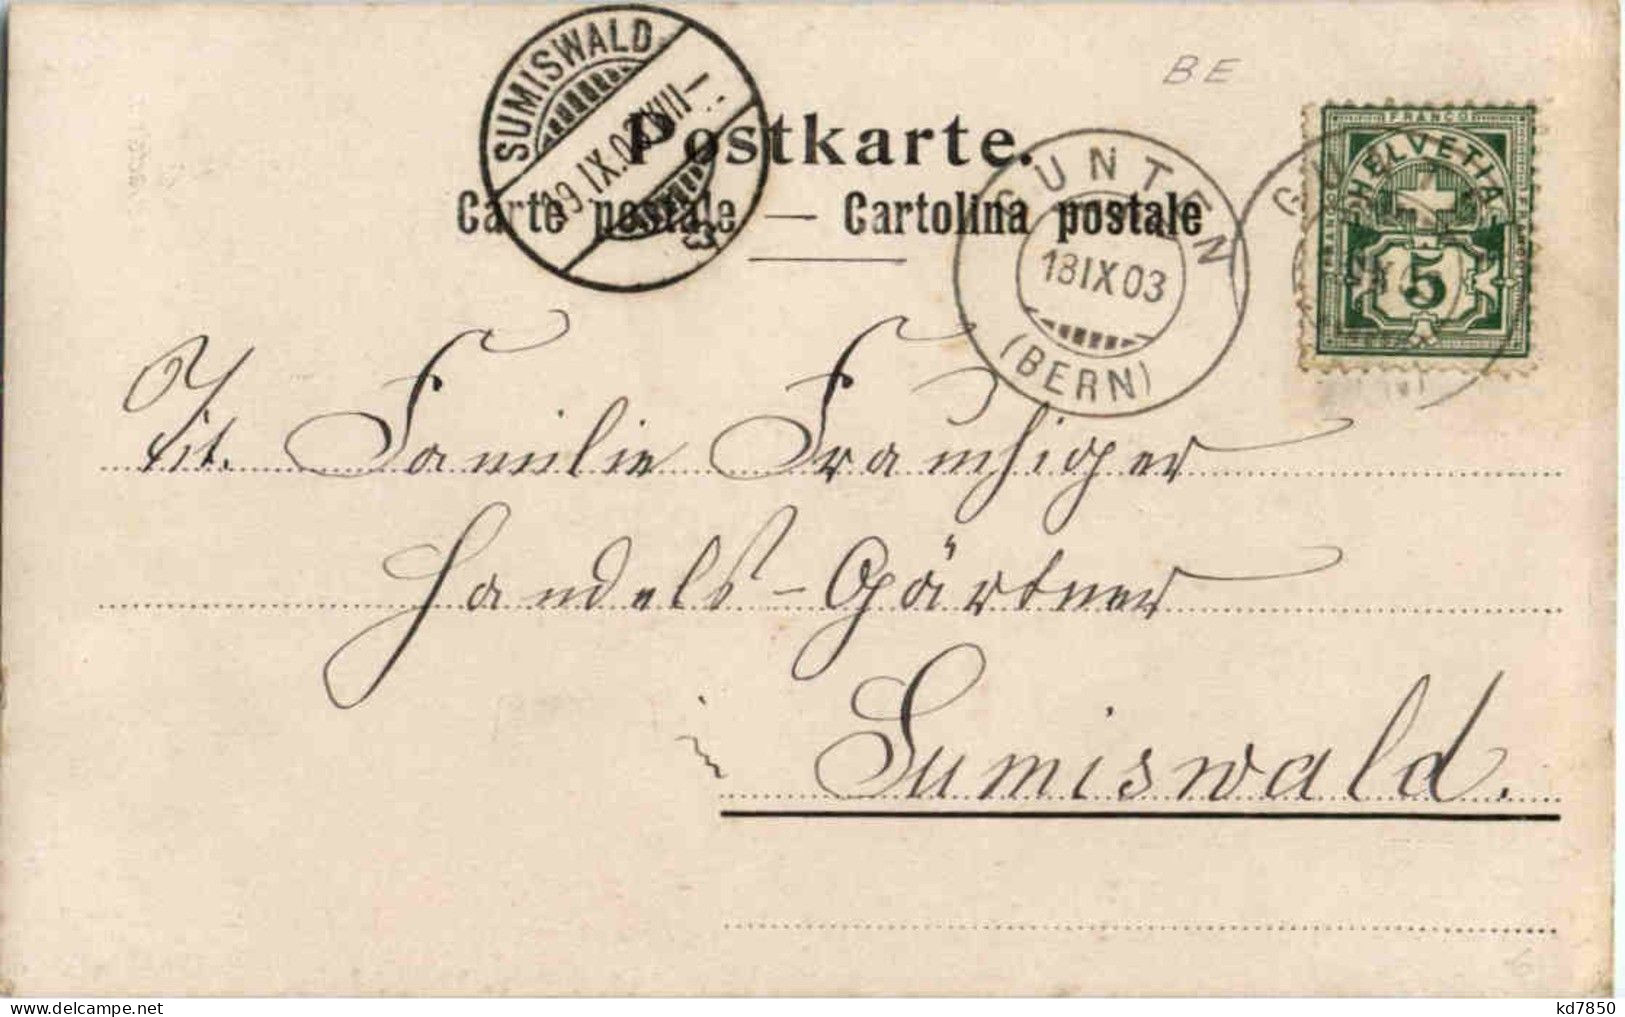 BE
SUMISWALD
19.IX.03.XVII
Postkarte.
Carte postale — Cartolina postale
GUNTEN
18 IX 03
(BERN)
FRANCO
HELVETIA
5
Tit. Familie Frauhiger
Handels-Gärtner
in
Sumiswald.
6
kd7850